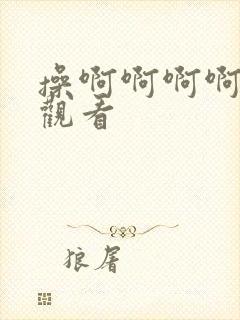 操啊啊啊啊
觀看
狼屠